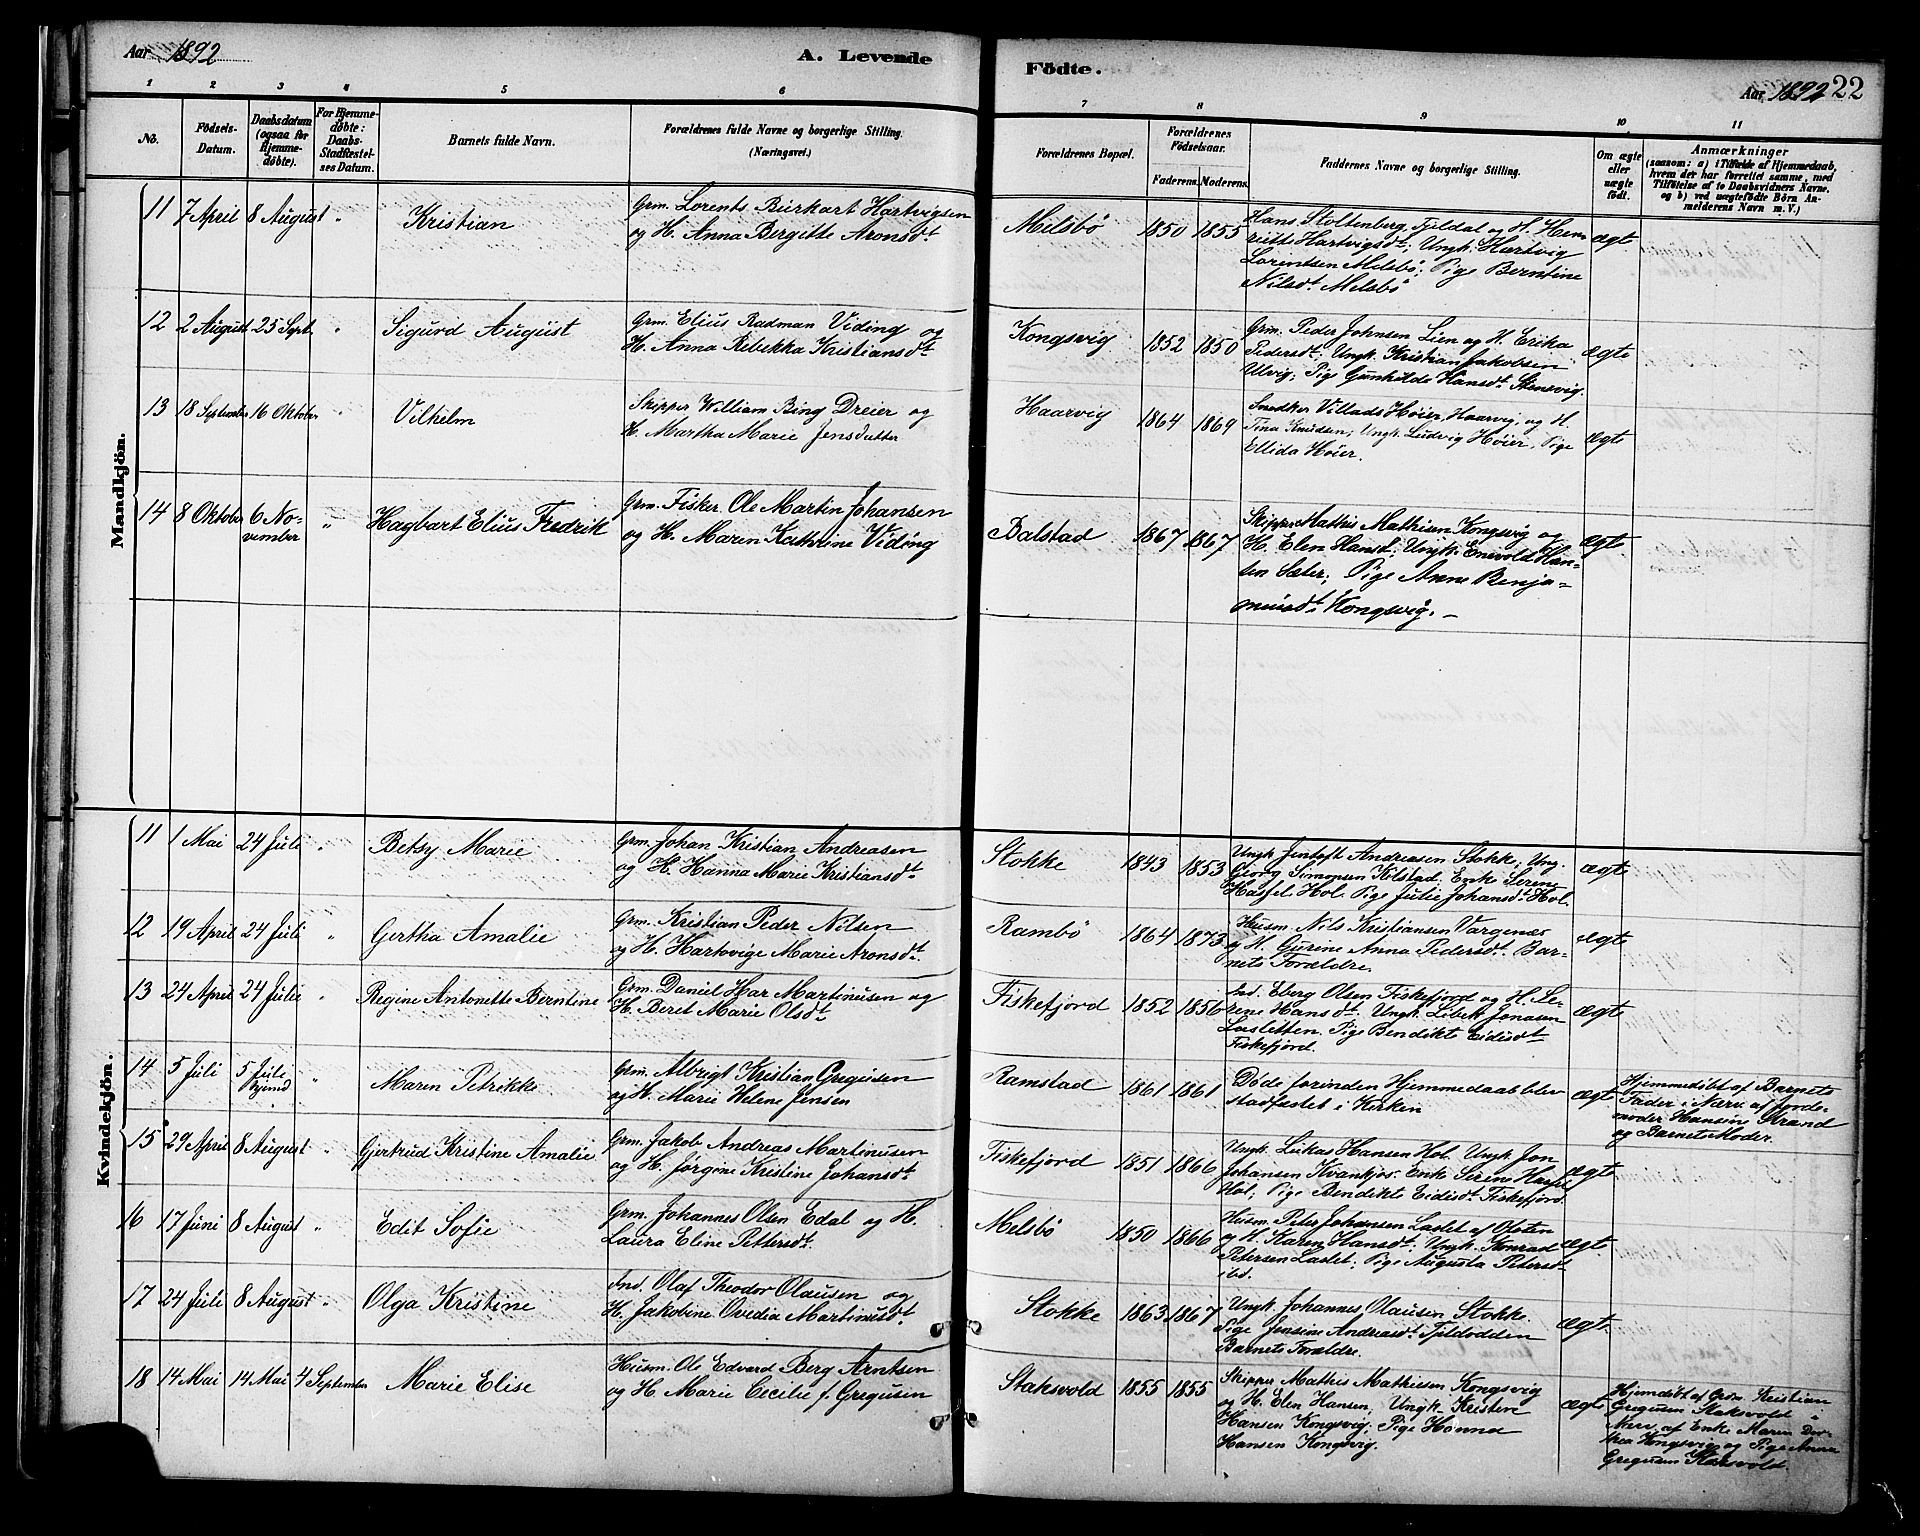 Aar 1892
A. Levende
Födte.
Aar 1892
22
1 2 3 4 5 6
7 8 9 10 11
No.
Födsels-
Datum.
Daabsdatum
(ogsaa for
Hjemme-
döbte).
For Hjemme-
döbte:
Daabs-
Stadfæstel-
ses Datum.
Barnets fulde Navn.
Forældrenes fulde Navne og borgerlige Stilling.
(Næringsvei.)
Forældrenes Bopæl.
Forældrenes
Födselsaar.
Faderens. Moderens.
Faddernes Navne og borgerlige Stilling.
Om ægte
eller
uægte
födt.
Anmærkninger
(saasom: a) i Tilfælde af Hjemmedaab,
hvem der har forrettet samme, med
Tilföielse af to Daabsvidners Navne,
og b) ved uægtefödte Börn An-
melderens Navn m. V.)
Mandkjön.
11 7 April 8 August " Kristian
Grm. Lorents Burkart Hartvigsen
og H. Anna Bergitte Aronsdt.
Melsbö 1850 1855
Hans Stoltenberg, Fjeldal og H. Hen-
riette Hartvigsdt; Ungk. Hartvig
Lorintsen Melsbö; Pige Berntine
Nilsdt. Melsbö
ægte
12 2 August 25 Sept. " Sigurd August
Grm. Elius Radman Viding og
H. Anna Rebekka Kristiansdt.
Kongsvig 1852 1850
Grm. Peder Johnsen Lien og H. Erika
Pedersdt; Ungk. Kristian Jakobsen
Ulvig; Pige Gunhilde Hansdt. Stensvig.
ægte
13 18 September 16 Oktober " Vilhelm
Skipper William Bing Dreier og
H. Martha Marie Jensdatter
Haarvig 1864 1869
Snedker Villads Høier, Haarvig, og H.
Tina Knudsen; Ungk. Ludvig Høier, Pige
Ellida Høier.
ægte
14 8 Oktober 6 No-
vember " Hagbart Elius Fredrik
Grm. Fisker Ole Martin Johansen
og H. Maren Kathrine Viding
Balstad 1867 1867
Skipper Mathis Mathisen Kongsvig og
H. Elen Hansdt; Ungk. Enevold Han-
sen Sæter; Pige Anne Benja-
minsdt. Kongsvig.
ægte.
Kvindekjön.
11 1 Mai 24 Juli " Betsy Marie
Grm. Johan Kristian Andreasen
og H. Hanna Marie Kristiansdt.
Stokke 1843 1853
Ungk. Jentoft Andreasen Stokke; Ung.
Georg Simonsen Kilstad, Enke Seren
Hassel Hol. Pige Julie Johansdt. Hol.
ægte
12 19 April 24 Juli " Gertha Amalie
Grm. Kristian Peder Nilsen
og H. Hartvige Marie Aronsdt.
Rambö 1864 1873
Husm. Nils Kristiansen Vargenæs
og H. Gurine Anna Pedersdt. Bar-
nets Forældre.
ægte
13 24 April 24 Julie " Regine Antonette Berntine
Grm. Daniel Har Martinusen og
H. Beret Marie Olsdt.
Fiskefjord 1852 1856
Ind. Eberg Olsen Fiskefjord og H. Se-
rene Hansdt. Ungk. Libek Jonasen
Laslitten. Pige Bendikte Eidisdt.
Fiskefjord.
ægte
14 5 Juli 5 Juli
hjemd " Maren Petrikke
Grm. Albrigt Kristian Gregusen
og H. Marie Helene Jensen
Ramstad 1861 1861
Døde forinden Hjemmedaab blev
stadfæstet i Kirken
ægte
Hjemmedöbt af Barnets
Fader i Nærv. af Jorde-
moder Hansine Strand
og Barnets Moder.
15 29 April 8 August " Gjertrud Kristine Amalie
Grm. Jakob Andreas Martinusen
og H. Jørgine Kristine Johansdt.
Fiskefjord 1851 1866
Ungk. Lukas Hansen Hol. Ungk. Jon
Johansen Kvankjos. Enke Serene Hassel
Hol; Pige Bendikte Eidisdt. Fiskefjord.
ægte
16 17 Juni 8 August " Edit Sofie
Grm. Johannes Olsen Edal og H.
Laura Eline Pettersdt.
Melsbö 1850 1866
Husm. Peter Johansen Lastet af Ofoten
og H. Karen Hansdt; Ungk. Konrad
Petersen Lastet; Pige Augusta Petersdt
ibd.
ægte.
17 24 Juli 8 August " Olga Kristine
Ind. Olaf Theodor Olausen og
H. Jakobine Ovedia Martinusdt.
Stokke 1863 1867
Ungk. Johannes Olausen Stokke.
Pige Jensine Andreasdt. Fjeldodden
Barnets Forældre.
ægte.
18 14 Mai 14 Mai 4 September Marie Elise
Husm. Ole Edvard Berg Arntsen
og H. Marie Cecelie f. Gregusen
Staksvold 1855 1855
Skipper Mathis Mathiesen Kongsvig
og H. Elen Hansen; Ungk. Kristen
Hansen Kongsvig; Pige Hanna
Hansen Kongsvig.
ægte
Hjemdöbt af Grm. Kristian
Gregusen Staksvold i
Nærv. af Enke Maren Dor-
thea Kongsvig og Pige Anna
Gregusen Staksvold.